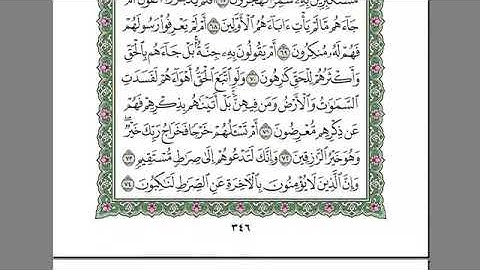 مُسْتَكْبِرِينَ بِهِۦ سَٰمِرًا تَهْجُرُونَ ٦٧ أَفَلَمْ يَدَّبَّرُوا۟ ٱلْقَوْلَ أَمْ
جَآءَهُم مَّا لَمْ يَأْتِ ءَابَآءَهُمُ ٱلْأَوَّلِينَ ٦٨ أَمْ لَمْ يَعْرِفُوا۟ رَسُولَهُمْ
فَهُمْ لَهُۥ مُنكِرُونَ ٦٩ أَمْ يَقُولُونَ بِهِۦ جِنَّةٌۢ ۚ بَلْ جَآءَهُم بِٱلْحَقِّ
وَأَكْثَرُهُمْ لِلْحَقِّ كَٰرِهُونَ ٧٠ وَلَوِ ٱتَّبَعَ ٱلْحَقُّ أَهْوَآءَهُمْ لَفَسَدَتِ
ٱلسَّمَٰوَٰتُ وَٱلْأَرْضُ وَمَن فِيهِنَّ ۚ بَلْ أَتَيْنَٰهُم بِذِكْرِهِمْ فَهُمْ
عَن ذِكْرِهِم مُّعْرِضُونَ ٧١ أَمْ تَسْـَٔلُهُمْ خَرْجًا فَخَرَاجُ رَبِّكَ خَيْرٌ ۖ
وَهُوَ خَيْرُ ٱلرَّٰزِقِينَ ٧٢ وَإِنَّكَ لَتَدْعُوهُمْ إِلَىٰ صِرَٰطٍ مُّسْتَقِيمٍ ٧٣
وَإِنَّ ٱلَّذِينَ لَا يُؤْمِنُونَ بِٱلْـَٔاخِرَةِ عَنِ ٱلصِّرَٰطِ لَنَٰكِبُونَ ٧٤
٣٤٦